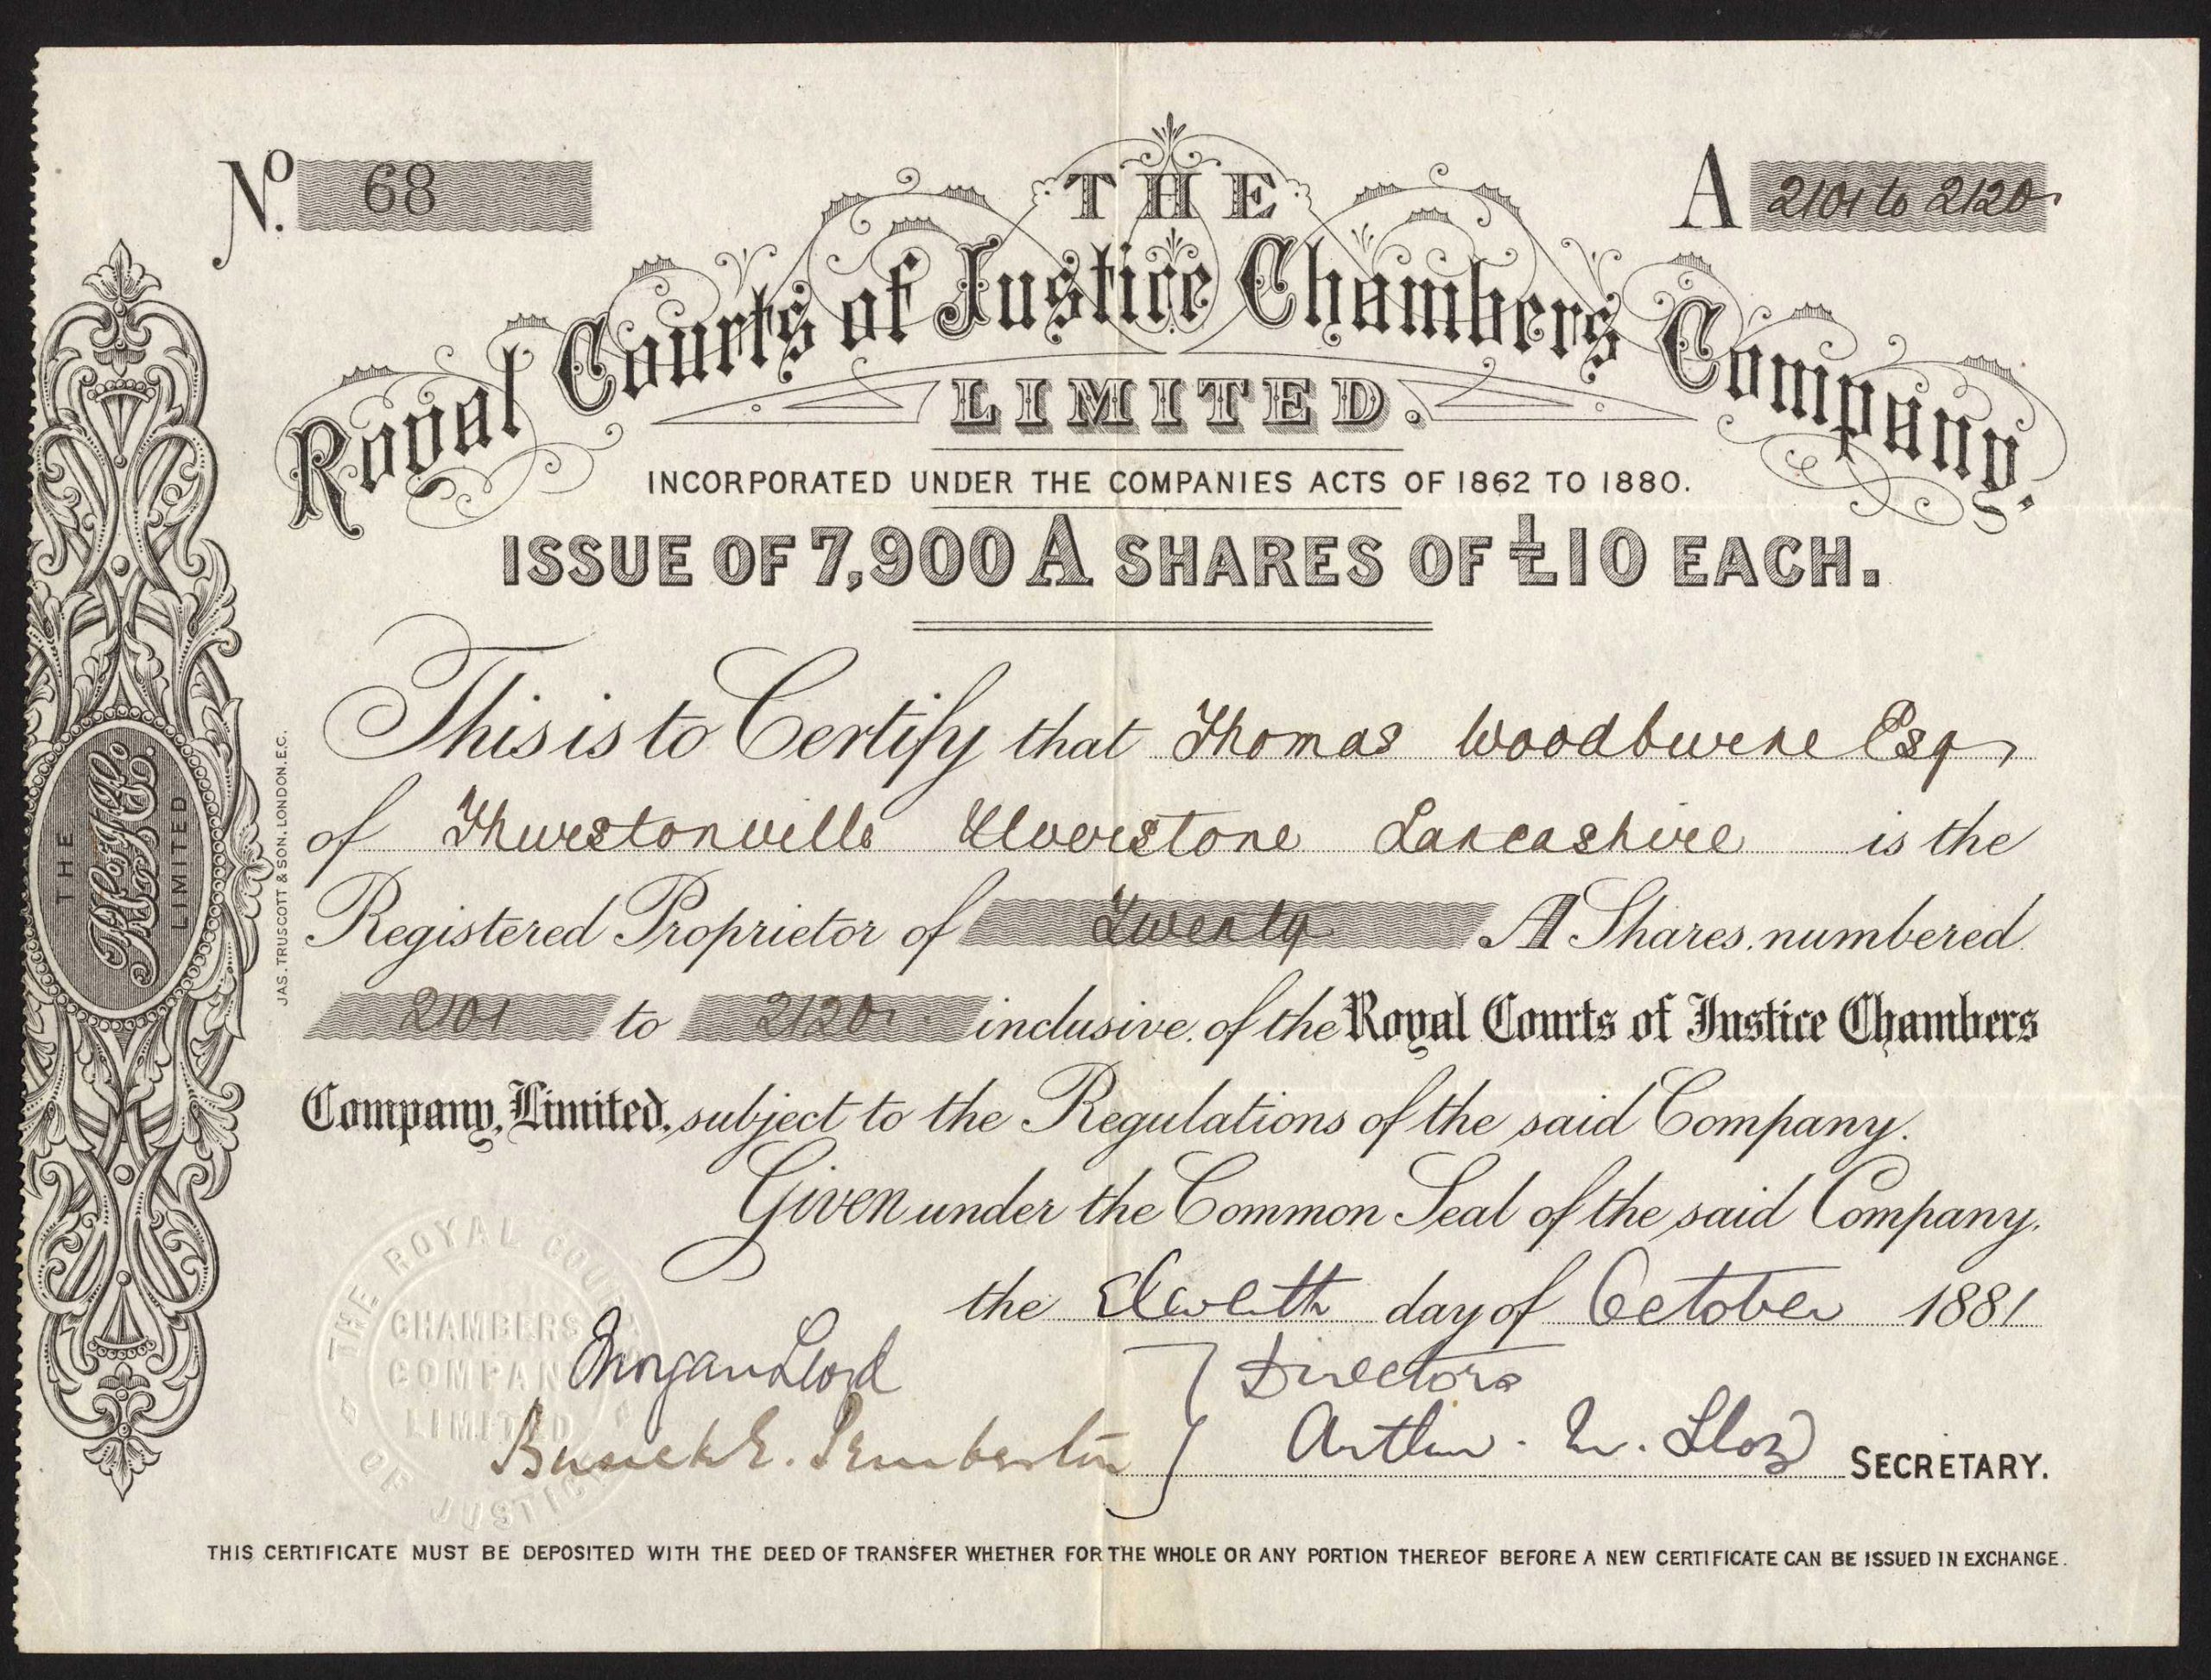 No. 68
A 2101 to 2120
THE
Royal Courts of Justice Chambers Company,
LIMITED.
INCORPORATED UNDER THE COMPANIES ACTS OF 1862 TO 1880.
ISSUE OF 7,900 A SHARES OF £10 EACH.
This is to Certify that Thomas Woodburne Esq
of Thurstonville Ulverstone Lancashire is the
Registered Proprietor of Twenty A Shares, numbered
2101 to 2120 inclusive, of the Royal Courts of Justice Chambers
Company, Limited, subject to the Regulations of the said Company.
Given under the Common Seal of the said Company,
the Eleventh day of October 1881
Morgan Lloyd } Directors
E. Pemberton
Arthur . Lloyd SECRETARY.
THE ROYAL COURTS OF JUSTICE
CHAMBERS
COMPANY
LIMITED
THIS CERTIFICATE MUST BE DEPOSITED WITH THE DEED OF TRANSFER WHETHER FOR THE WHOLE OR ANY PORTION THEREOF BEFORE A NEW CERTIFICATE CAN BE ISSUED IN EXCHANGE.
JAS. TRUSCOTT & SON, LONDON, E.C.
THE
LIMITED